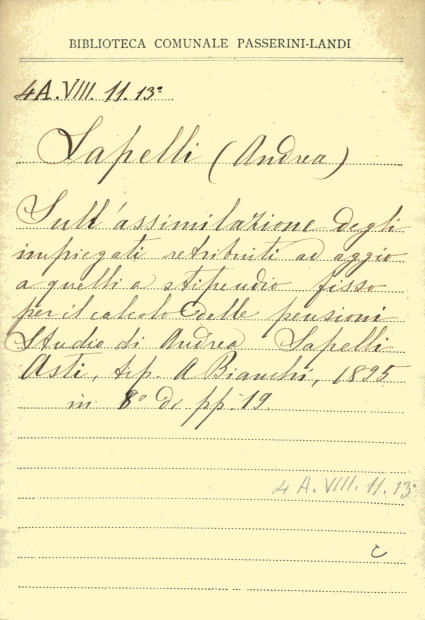 BIBLIOTECA COMUNALE PASSERINI-LANDI
4A.VIII.11.13º
Sapelli (Andrea)
Sull'assimilazione degli
impiegati retribuiti ad aggio
a quelli a stipendio fisso
per il calcolo delle pensioni
Studio di Andrea Sapelli
Asti, tip. A Bianchi, 1895
in 8º di pp. 19.
4 A. VIII. 11. 13º
c